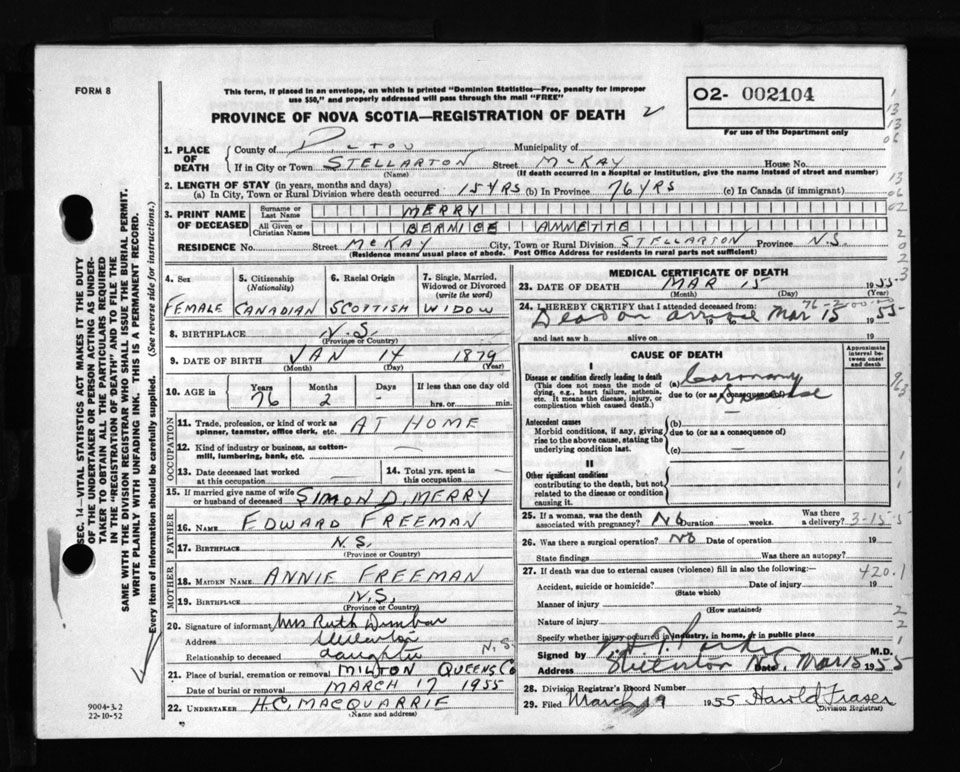 FORM 8
This form, if placed in an envelope, on which is printed "Dominion Statistics—Free, penalty for improper
use $50," and properly addressed will pass through the mail "FREE"
PROVINCE OF NOVA SCOTIA—REGISTRATION OF DEATH
O2- 002104
For use of the Department only
1. PLACE OF DEATH
County of Pictou Municipality of
If in City or Town STELLARTON Street McKAY House No.
(Name) (If death occurred in a hospital or institution, give the name instead of street and number)
2. LENGTH OF STAY (in years, months and days)
(a) In City, Town or Rural Division where death occurred 15 YRS (b) In Province 76 YRS (c) In Canada (if immigrant)
3. PRINT NAME OF DECEASED
Surname or Last Name MERRY
All Given or Christian Names BERNICE ANNETTE
RESIDENCE No. Street McKAY City, Town or Rural Division STELLARTON Province N.S.
(Residence means usual place of abode. Post Office Address for residents in rural parts not sufficient)
4. Sex FEMALE
5. Citizenship (Nationality) CANADIAN
6. Racial Origin SCOTTISH
7. Single, Married, Widowed or Divorced (write the word) WIDOW
8. BIRTHPLACE N.S.
(Province or Country)
9. DATE OF BIRTH JAN 14 1879
(Month) (Day) (Year)
10. AGE in Years 76 Months 2 Days - If less than one day old hrs. or min.
OCCUPATION
11. Trade, profession, or kind of work as spinner, teamster, office clerk, etc. AT HOME
12. Kind of industry or business, as cotton-mill, lumbering, bank, etc. —
13. Date deceased last worked at this occupation
14. Total yrs. spent in this occupation —
15. If married give name of wife or husband of deceased SIMON D. MERRY
FATHER
16. NAME EDWARD FREEMAN
17. BIRTHPLACE N.S.
(Province or Country)
MOTHER
18. MAIDEN NAME ANNIE FREEMAN
19. BIRTHPLACE N.S.
(Province or Country)
20. Signature of informant Mrs Ruth Dunbar
Address Stellarton N.S.
Relationship to deceased daughter
21. Place of burial, cremation or removal MILTON QUEENS Co
Date of burial or removal MARCH 17 1955
22. UNDERTAKER H.C. MACQUARRIE
(Name and address)
MEDICAL CERTIFICATE OF DEATH
23. DATE OF DEATH MAR 15 1955
(Month) (Day) (Year)
24. I HEREBY CERTIFY that I attended deceased from:
Dead on arrival Mar 15 1955
and last saw h alive on 19
CAUSE OF DEATH
Approximate interval between onset and death
I
Disease or condition directly leading to death
(This does not mean the mode of dying, e.g., heart failure, asthenia, etc. It means the disease, injury, or complication which caused death.)
(a) Coronary
due to (or as a consequence of)
Disease
Antecedent causes
Morbid conditions, if any, giving rise to the above cause, stating the underlying condition last.
(b)
due to (or as a consequence of)
(c) —
II
Other significant conditions
contributing to the death, but not related to the disease or condition causing it.
25. If a woman, was the death associated with pregnancy? No Duration weeks. Was there a delivery? 3-15-5
26. Was there a surgical operation? No Date of operation 19
State findings Was there an autopsy?
27. If death was due to external causes (violence) fill in also the following:— 420.1
Accident, suicide or homicide? Date of injury 19
(State which)
Manner of injury
(How sustained)
Nature of injury
Specify whether injury occurred in industry, in home, or in public place
Signed by M.D.
Address Stellarton N.S. Date Mar 15 1955
28. Division Registrar's Record Number
29. Filed March 19 1955 Harold Fraser
(Division Registrar)
SEC. 14—VITAL STATISTICS ACT MAKES IT THE DUTY
OF THE UNDERTAKER OR PERSON ACTING AS UNDER-
TAKER TO OBTAIN ALL THE PARTICULARS REQUIRED
IN THE "REGISTRATION OF DEATH" AND TO FILE THE
SAME WITH THE DIVISION REGISTRAR WHO SHALL ISSUE THE BURIAL PERMIT.
WRITE PLAINLY WITH UNFADING INK. THIS IS A PERMANENT RECORD.
Every item of information should be carefully supplied. (See reverse side for instructions.)
9004-3.2
22-10-52